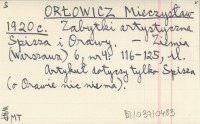 ORŁOWICZ Mieczysław
1920 r. Zabytki artystyczne
Spisza i Orawy. – Ziemia
(Warszawa) 6, nr 4: 116-125, il.
Artykuł dotyczy tylko Spisza
(o Orawie nic niema).
MT